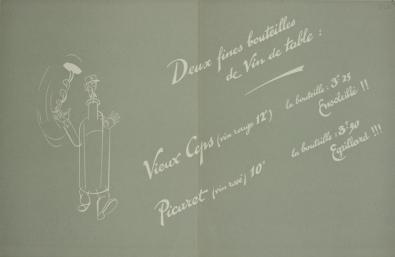 Deux fines bouteilles
de Vin de table :
Vieux Ceps (vin rouge 12°) la bouteille : 3f 25
Ensoleillé !!
Picaret (vin rosé) 10° la bouteille : 3f 20
Égrillard !!!